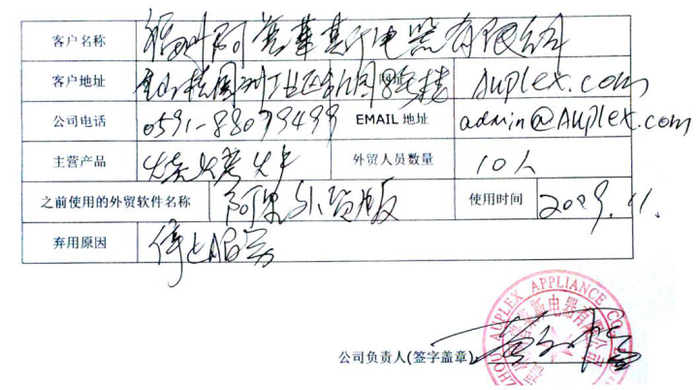 客户名称 福州阿普莱斯电器有限公司
客户地址 金山桔园洲工业区 网址 Auplex.com
公司电话 0591-88079499 EMAIL地址 admin@Auplex.com
主营产品 烧烤炉 外贸人员数量 10人
之前使用的外贸软件名称 外贸版 使用时间
弃用原因 停止服务
公司负责人(签字盖章)
AUPLEX APPLIANCE CO
电器有限公司